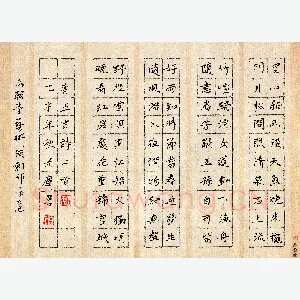 空山新雨後天氣晚來秋
明月松間照清泉石上流
竹喧歸浣女蓮動下漁舟
隨意春芳歇王孫自可留
好雨知時節當春乃發生
隨風潛入夜潤物細無聲
野徑雲俱黑江船火獨明
曉看紅濕處花重錦官城
五言詩二首
年秋月